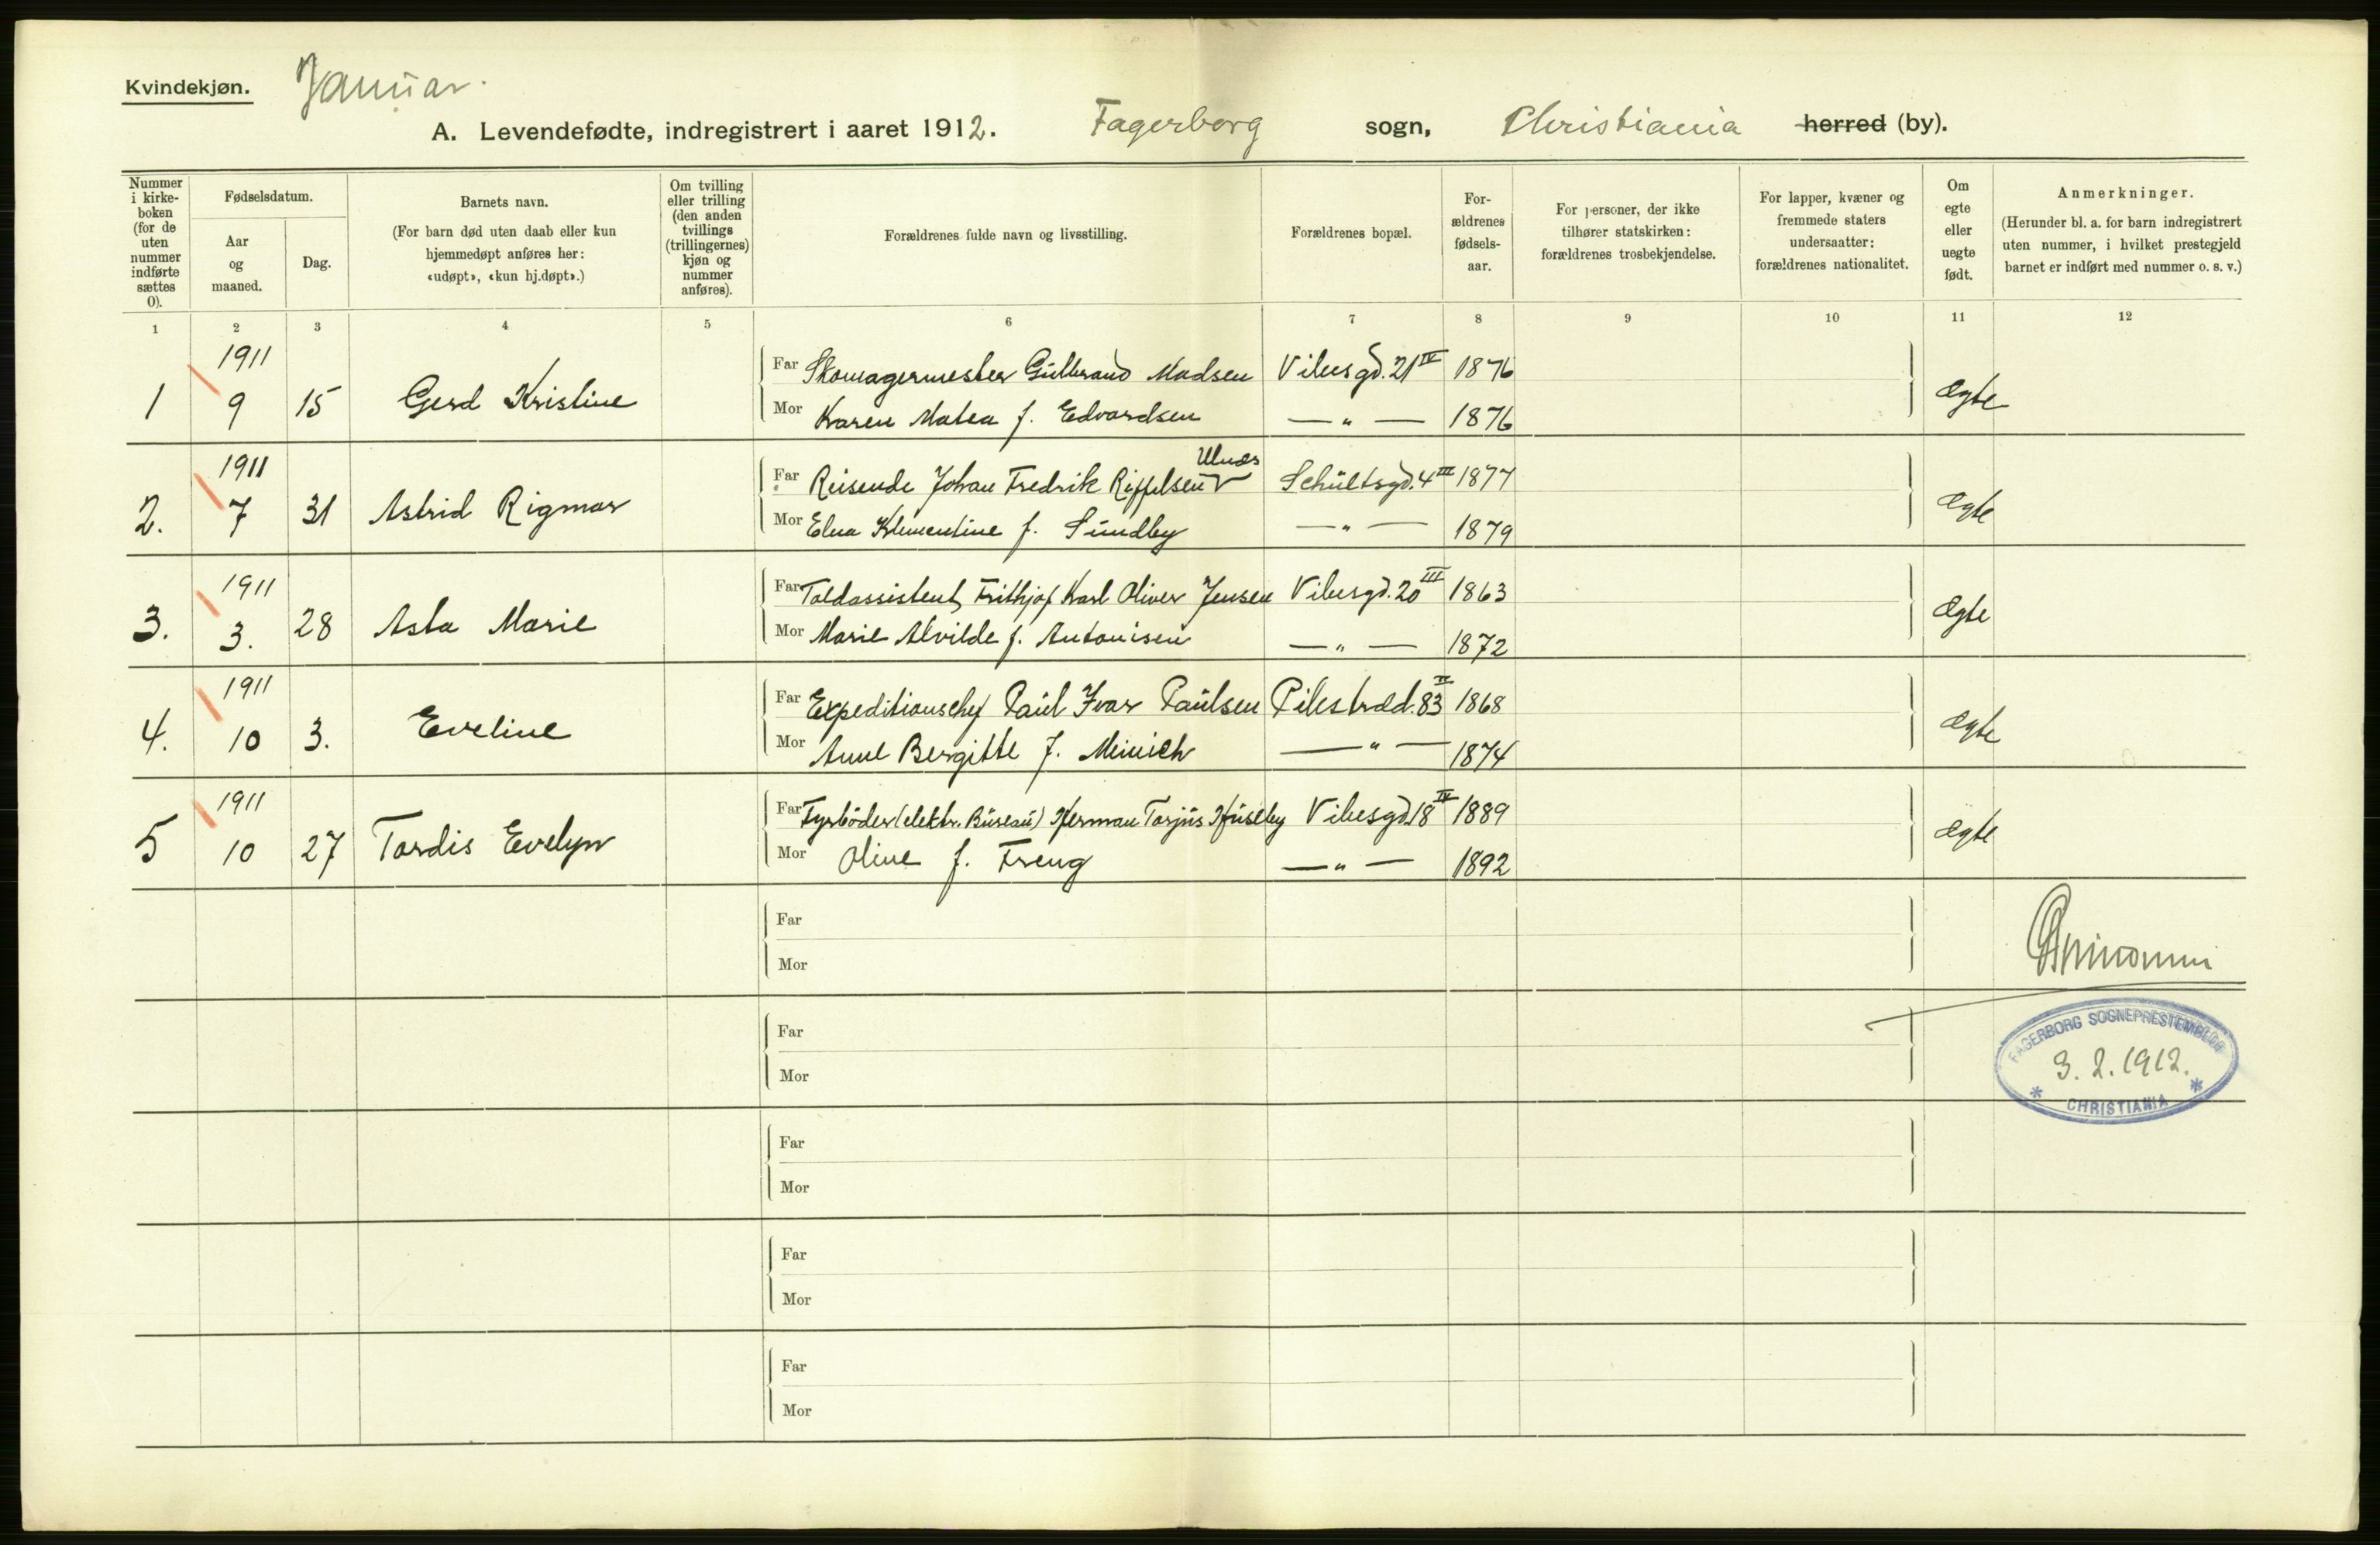 Kvindekjøn. Januar.
A. Levendefødte, indregistrert i aaret 1912. Fagerborg sogn, Christiania herred (by).
Nummer i kirke-boken (for de uten nummer indførte sættes 0).
Fødselsdatum.
Aar og maaned.
Dag.
Barnets navn.
(For barn død uten daab eller kun hjemmedøpt anføres her: «udøpt», «kun hj.døpt».)
Om tvilling eller trilling (den anden tvillings (trillingernes) kjøn og nummer anføres).
Forældrenes fulde navn og livsstilling.
Forældrenes bopæl.
For-ældrenes fødsels-aar.
For personer, der ikke tilhører statskirken: forældrenes trosbekjendelse.
For lapper, kvæner og fremmede staters undersaatter: forældrenes nationalitet.
Om egte eller uegte født.
Anmerkninger.
(Herunder bl. a. for barn indregistrert uten nummer, i hvilket prestegjeld barnet er indført med nummer o. s. v.)
1 2 3 4 5 6 7 8 9 10 11 12
1911
Far Skomagermester Gulbrand Madsen Vibesgd. 21 IV 1876
1 9 15 Gerd Kristine ægte
Mor Karen Matea f. Edvardsen — " — 1876
1911 Ulnæs
Far Reisende Johan Fredrik Rippelsen Schultsgd. 4 III 1877
2. 7 31 Astrid Rigmor ægte
Mor Elna Klementine f. Sundby — " — 1879
1911
Far Toldassistent Frithjof Karl Oliver Jensen Vibesgd. 20 III 1863
3. 3. 28 Asta Marie ægte
Mor Marie Alvilde f. Antonisen — " — 1872
1911
Far Expeditionschef Paul Ivar Paulsen Pilestræd. 83 II 1868
4. 10 3. Eveline ægte
Mor Anne Bergitte f. Meinich — " — 1874
1911
Far Fyrbøder (elektr. Bureau) Herman Torjus Huseby Vibesgd. 18 IV 1889
5 10 27 Tordis Evelyn ægte
Mor Oline f. Freng — " — 1892
Far
Mor
Far
FAGERBORG SOGNEPRESTEMBEDE
3. 2. 1912.
Mor
* CHRISTIANIA *
Far
Mor
Far
Mor
Far
Mor